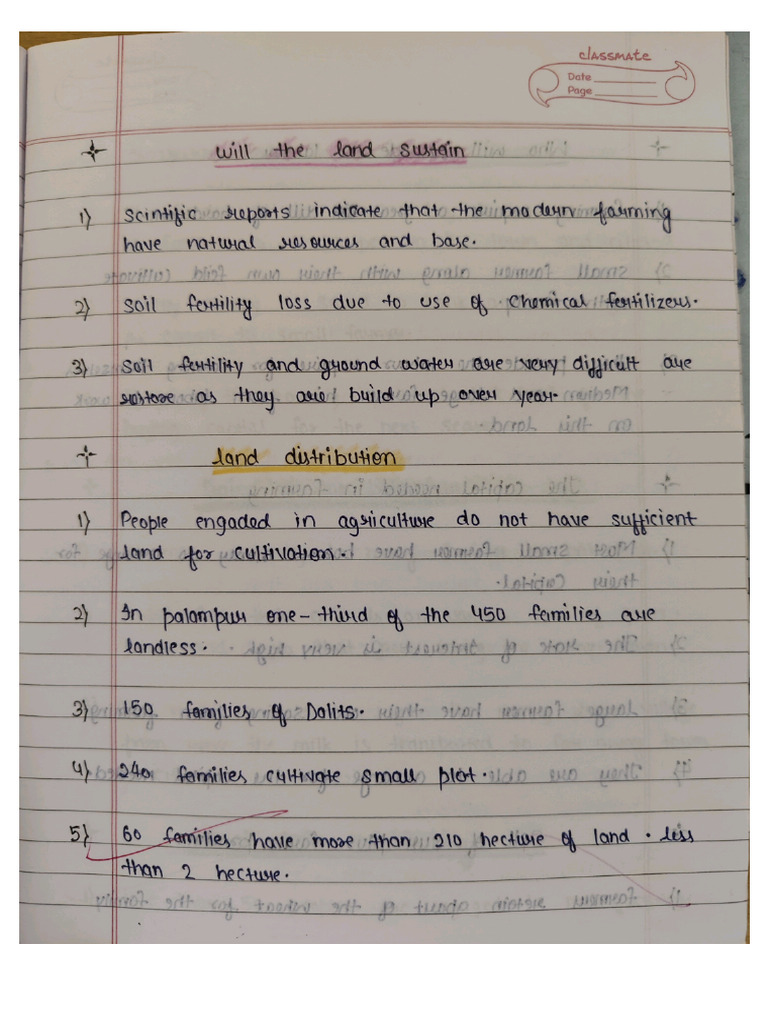 classmate
Date
Page
will the land sustain
1) Scintific reports indicate that the modern farming
have natural resources and base.
2) Soil fertility loss due to use of chemical fertilizers.
3) Soil fertility and ground water are very difficult are
restore as they are build up over year.
land distribution
1) People engaded in agriculture do not have sufficient
land for cultivation.
2) In palampur one-third of the 450 families are
landless.
3) 150 families of Dalits.
4) 240 families cultivate small plot.
5) 60 families have more than 210 hecture of land. less
than 2 hecture.